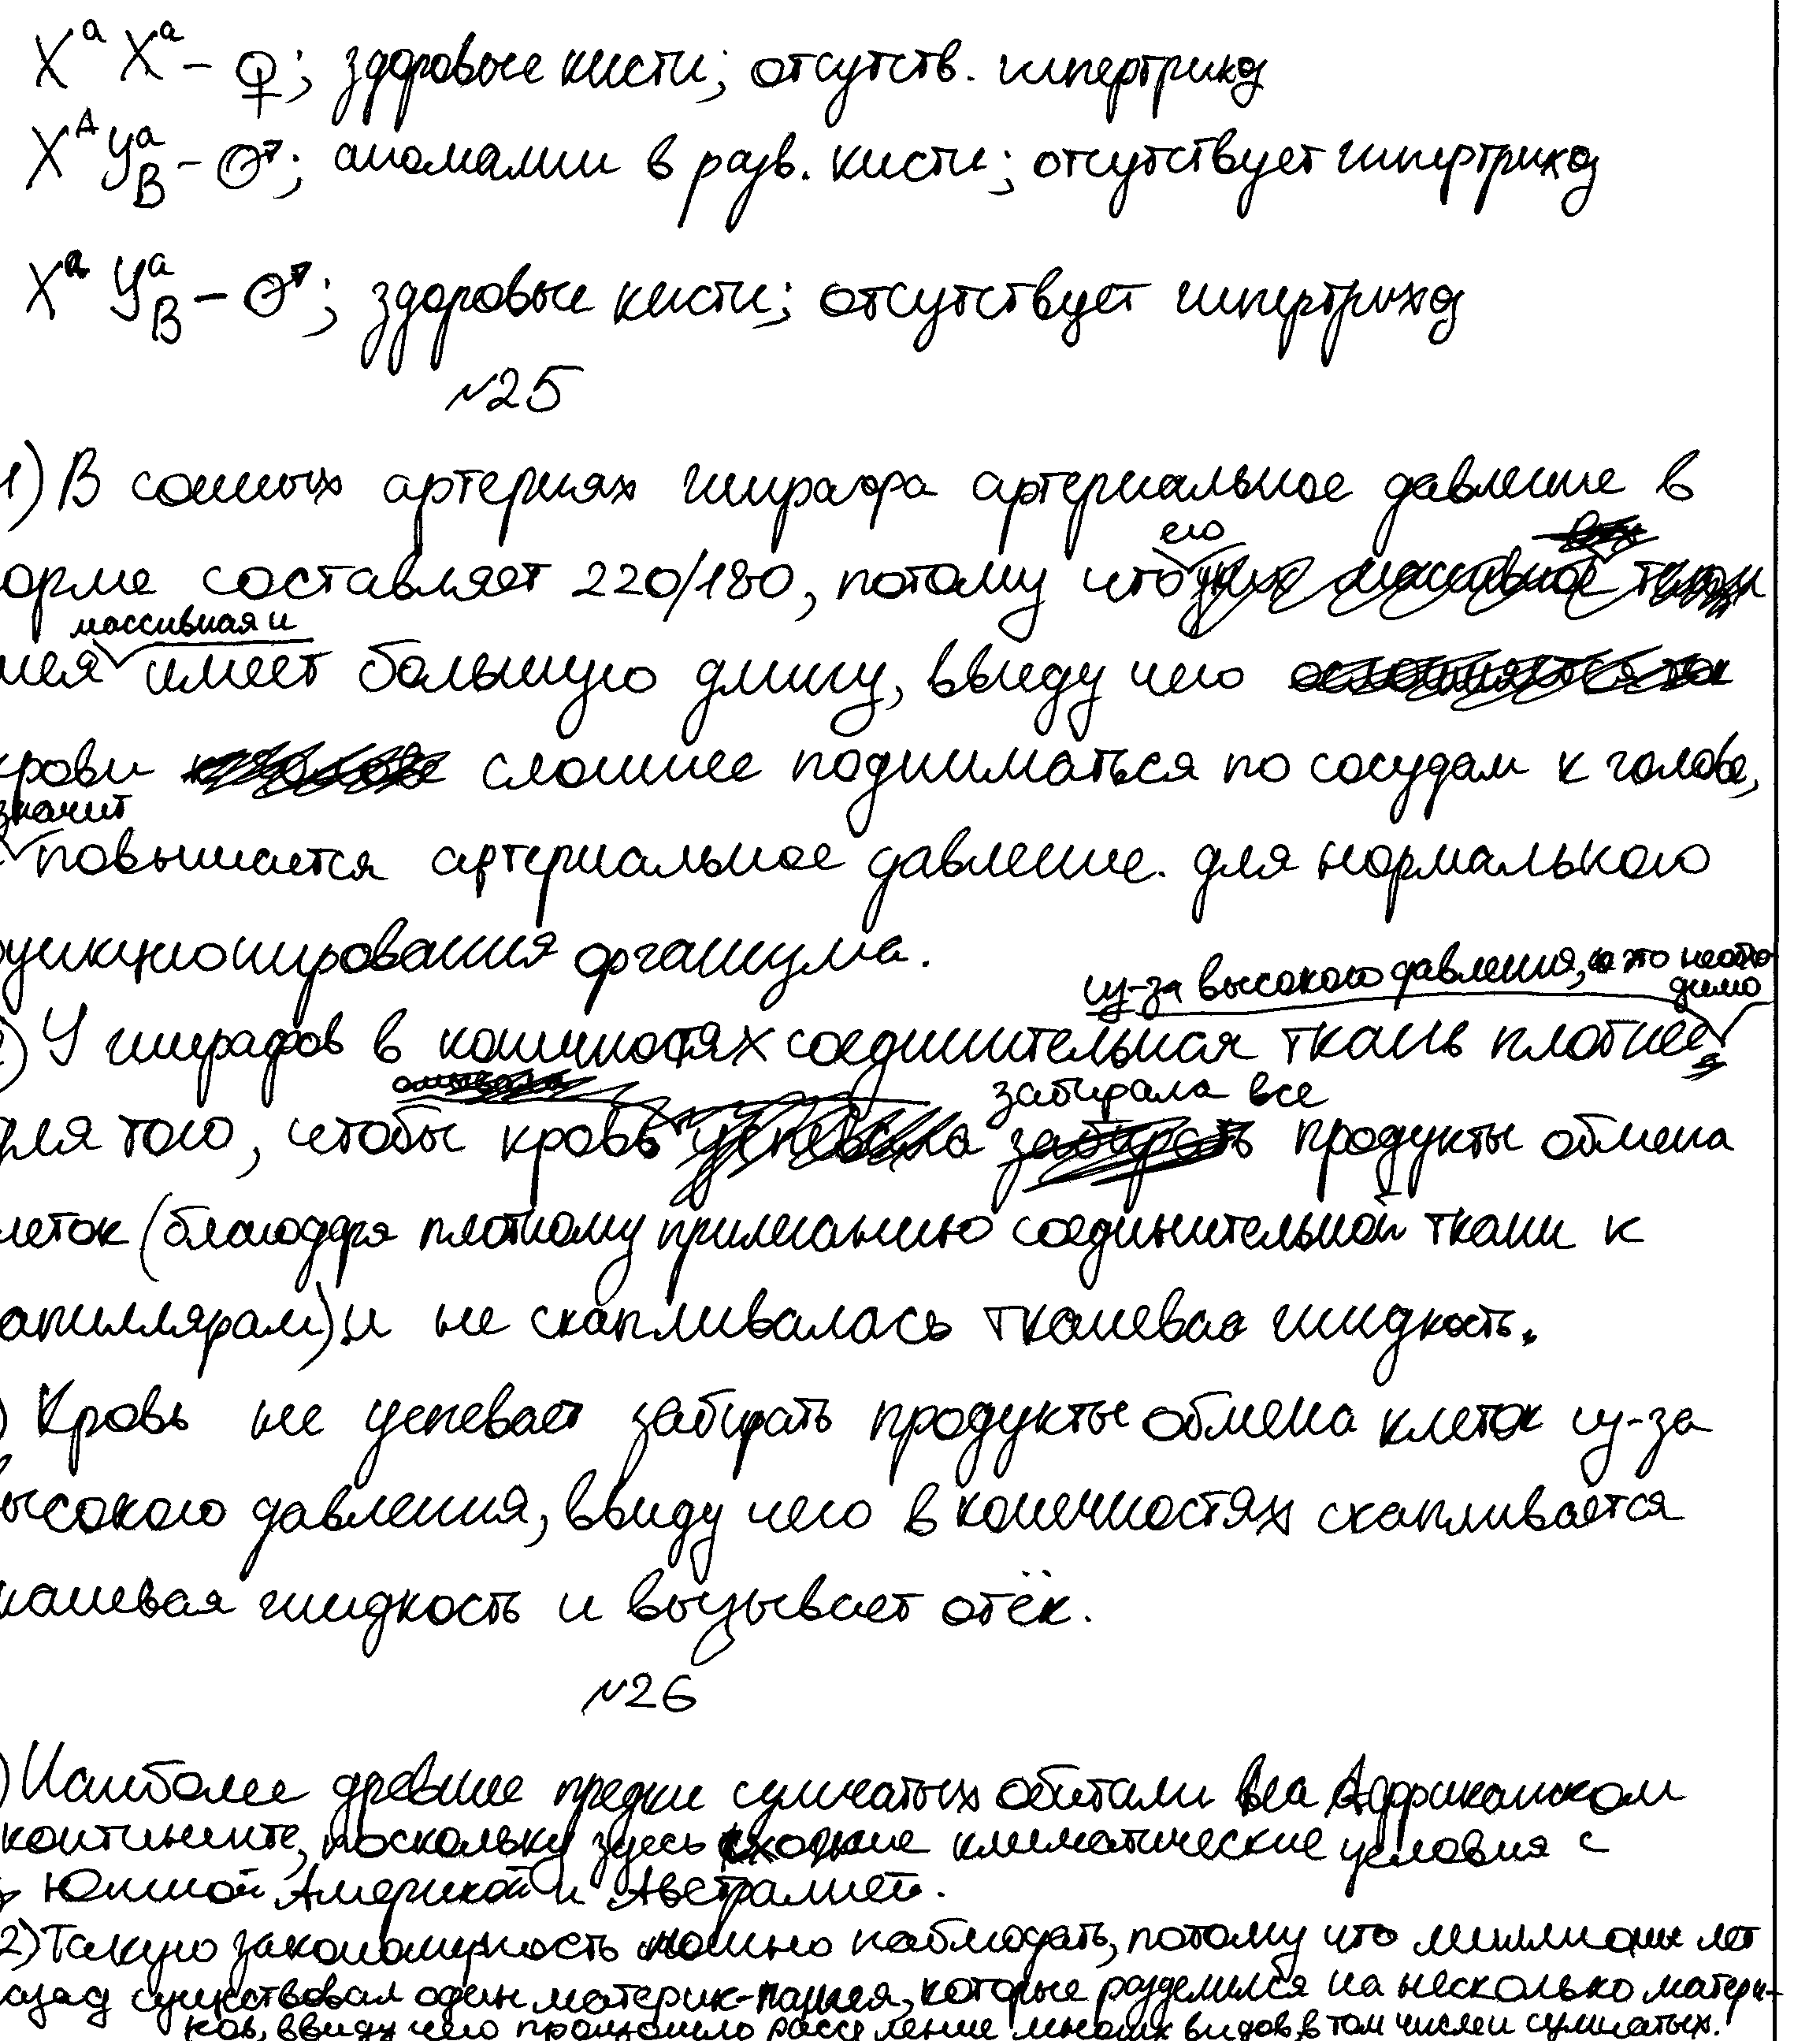 XᵃXᵃ - ♀; здоровые кисти; отсутств. гипертрихоз
XᴬYᵃB - ♂; аномалии в разв. кисти; отсутствует гипертрихоз
XᵃYᵃB - ♂; здоровые кисти; отсутствует гипертрихоз
№25
1) В сонных артериях жирафа артериальное давление в
орме составляет 220/180, потому что его
шея массивная и имеет большую длину, ввиду чего
крови сложнее подниматься по сосудам к голове,
значит повышается артериальное давление. для нормального
функционирования организма.
из-за высокого давления, а это необходимо
2) У жирафов в конечностях соединительная ткань плотнее
для того, чтобы кровь забирала все продукты обмена
леток (благодаря плотному прилеганию соединительной ткани к
апиллярам) и не скапливалась тканевая жидкость.
) Кровь не успевает забирать продукты обмена клеток из-за
ысокого давления, ввиду чего в конечностях скапливается
каневая жидкость и вызывает отёк.
№26
) Наиболее древние предки сумчатых обитали на Африканском
континенте, поскольку здесь схожие климатические условия с
Южной Америкой и Австралией.
2) Такую закономерность можно наблюдать, потому что миллионы лет
азад существовал один материк-пангея, которые разделился на несколько матери-
ков, ввиду чего произошло расселение многих видов, в том числе и сумчатых.